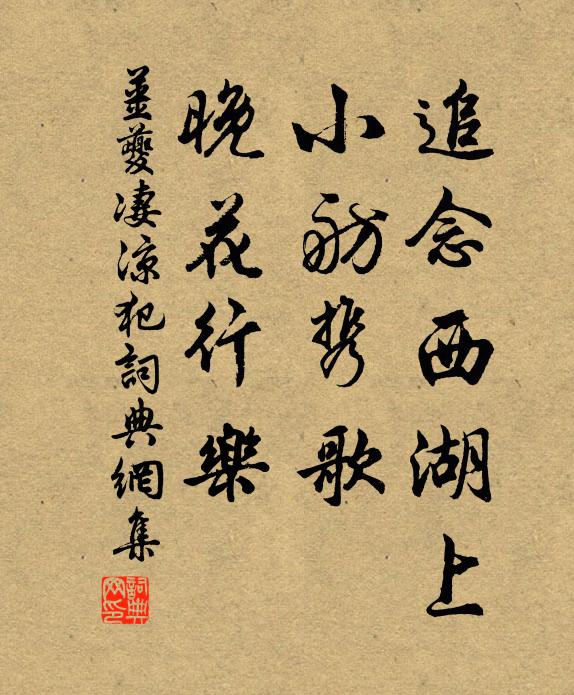 追念西湖上
小舫携歌
晚花行樂
姜夔淒涼犯詞典網集
詞典网印